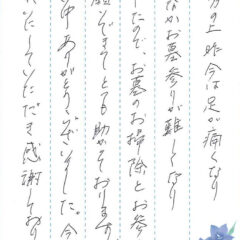 の上 昨今は足が痛くなり
なかお墓参りが難しくなり
したので、お墓のお掃除とお参
できてとても助かっております
中ありがとうございました。今
いにしていただき感謝しており